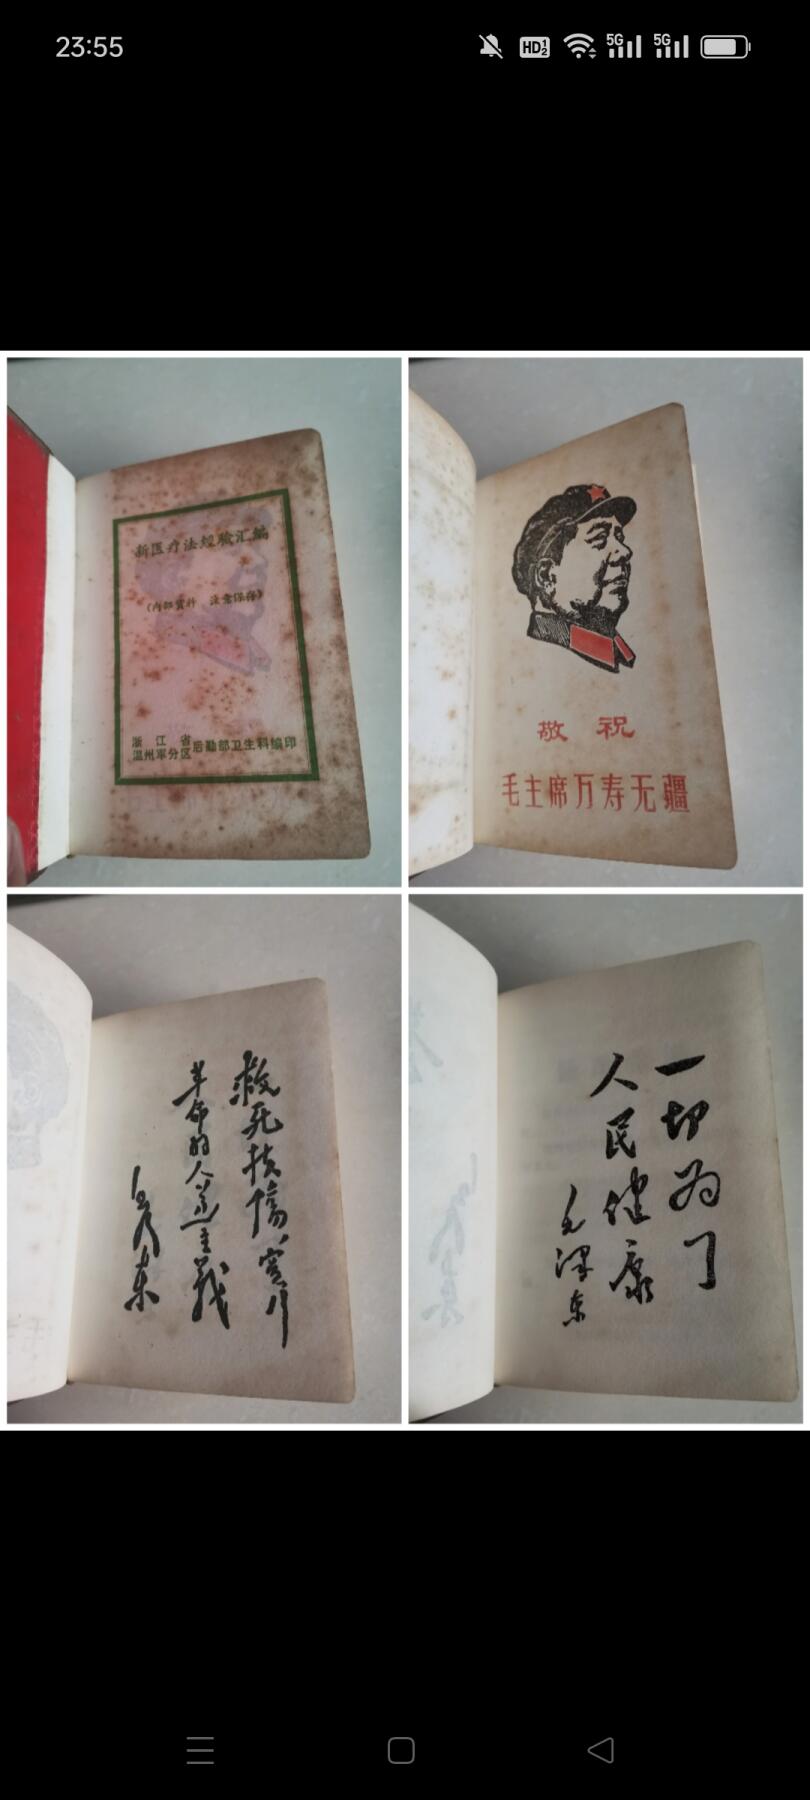 23:55
HD 1 2
5G
5G
新医疗法经验汇编
(内部资料 注意保存)
浙江省
温州军分区后勤部卫生科编印
敬祝
毛主席万寿无疆
救死扶伤,实行
革命的人道主义
毛泽东
一切为了
人民健康
毛泽东